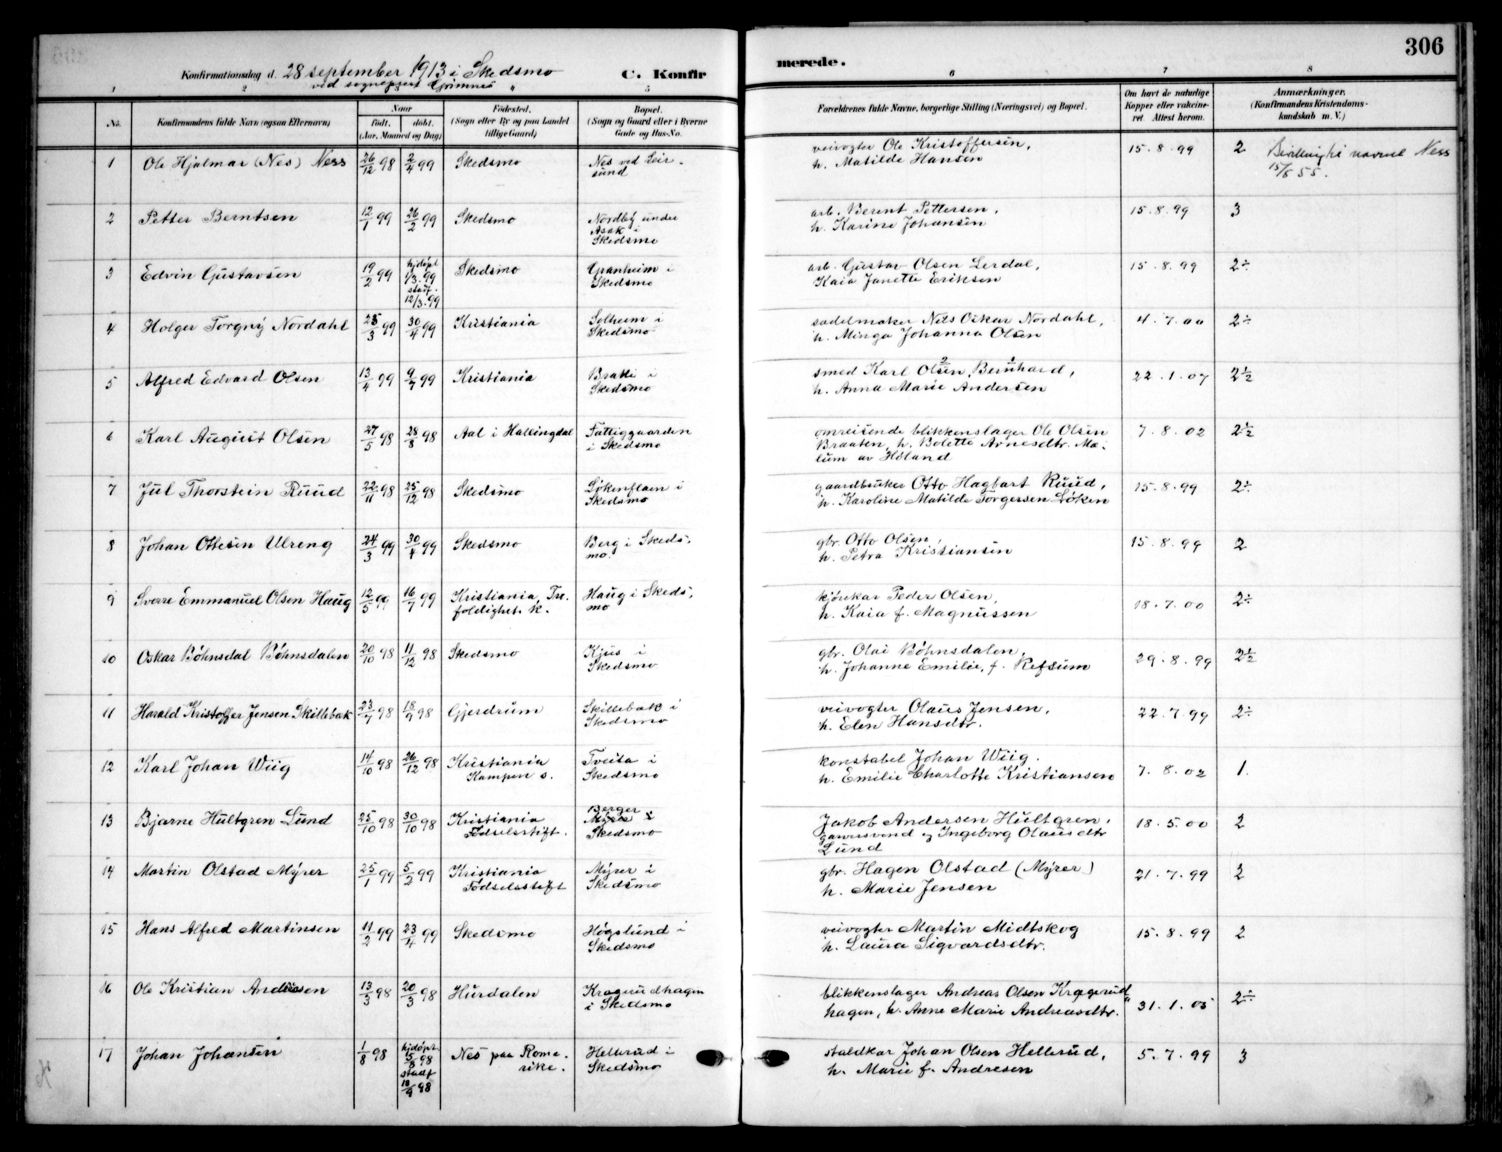 306
Konfirmationsdag d. 28 september 1913 i Skedsmo C. Konfirmerede.
ved sogneprest Grimnes
1 2 3 4 5 6 7 8
No. Konfirmandens fulde Navn (ogsaa Efternavn) Naar født. døbt. (Aar, Maaned og Dag) Fødested. (Sogn eller By og paa Landet tillige Gaard) Bopæl. (Sogn og Gaard eller i Byerne Gade og Hus-No. Forældrenes fulde Navne, borgerlige Stilling (Næringsvei) og Bopæl. Om havt de naturlige Kopper eller vakcineret. Attest herom. Anmærkninger. (Konfirmandens Kristendomskundskab m. V.)
1 Ole Hjalmar (Nes) Ness 26/12 98 2/4 99 Skedsmo Nes ved Leirsund veivogter Ole Kristoffersen, h. Matilde Hansen 15.8.99 2 navnet Ness 15/6 55.
2 Petter Berntsen 12/1 99 26/2 99 Skedsmo Nordby under Asak i Skedsmo arb. Berent Pettersen, h. Karine Johansen 15.8.99 3
3 Edvin Gustavsen 19/2 99 hjdøpt 1/3.99 stadf. 12/3.99 Skedsmo Granheim i Skedsmo arb. Gustav Olsen Lerdal, Kaia Janette Eriksen 15.8.99 2÷
4 Holger Torgny Nordahl 25/3 99 30/4 99 Kristiania Solheim i Skedsmo sadelmaker Nils Oskar Nordahl, h. Minga Johanna Olsen 4.7.00 2÷
5 Alfred Edvard Olsen 13/4 99 9/7 99 Kristiania Bratli i Skedsmo smed Karl Olsen Bernhard, h. Anna Marie Andersen 22.1.07 2½
6 Karl August Olsen 27/5 98 28/8 98 Aal i Hallingdal Fattiggaarden i Skedsmo omreisende blikkenslager Ole Olsen Braaten, h. Bolette Arnesdtr. Mælum av Høland 7.8.02 2½
7 Jul Thorstein Ruud 22/11 98 25/12 98 Skedsmo Løkenflaen i Skedsmo gaardbruker Otto Hagbart Ruud, h. Karoline Matilde Torgersen Løken 15.8.99 2÷
8 Johan Ottesen Ulreng 24/3 99 30/4 99 Skedsmo Berg i Skedsmo. gbr. Otto Olsen, h. Petra Kristiansen 15.8.99 2
9 Sverre Emmanuel Olsen Haug 12/5 99 16/7 99 Kristiania, Trefoldighet. k. Haug i Skedsmo kjørekar Peder Olsen, h. Kaia f. Magnussen 18.7.00 2÷
10 Oskar Bøhnsdal Bøhnsdalen 20/10 98 11/12 98 Skedsmo Kjus i Skedsmo gbr. Olai Bøhnsdalen, h. Johanne Emilie, f. Refsum 29.8.99 2½
11 Harald Kristoffer Jensen Skillebæk 23/7 98 18/9 98 Gjerdrum Skillebæk i Skedsmo veivogter Olaus Jensen, h. Elen Hansdtr. 22.7.99 2÷
12 Karl Johan Wiig 14/10 98 26/12 98 Kristiania Kampen s. Tveita i Skedsmo konstabel Johan Wiig. h. Emilie Charlotte Kristiansen 7.8.02 1.
13 Bjarne Hultgren Lund 25/10 98 30/10 98 Kristiania Fødselsstift. Berger Myrer i Skedsmo Jakob Andersen Hultgren, garversvend og Ingeborg Olausdtr Lund 18.5.00 2
14 Martin Olstad Myrer 25/1 99 5/2 99 Kristiania Fødselsstift Myrer i Skedsmo gbr. Hagen Olstad (Myrer) h. Marie Jensen 21.7.99 2
15 Hans Alfred Martinsen 11/2 99 23/4 99 Skedsmo Høgslund i Skedsmo veivogter Martin Midtskog h. Laura Sigvardsdtr. 15.8.99 2
16 Ole Kristian Andresen 13/3 98 20/3 98 Hurdalen Kragerudhagen i Skedsmo blikkenslager Andreas Olsen Kragerudhagen, h. Anne Marie Andreasdtr. 31.1.05 2÷
17 Johan Johansen 1/8 98 hjdøpt 5/8 98 stadf 18/9 98 Nes paa Romerike. Hellerud i Skedsmo staldkar Johan Olsen Hellerud, h. Marie f. Andresen 5.7.99 3